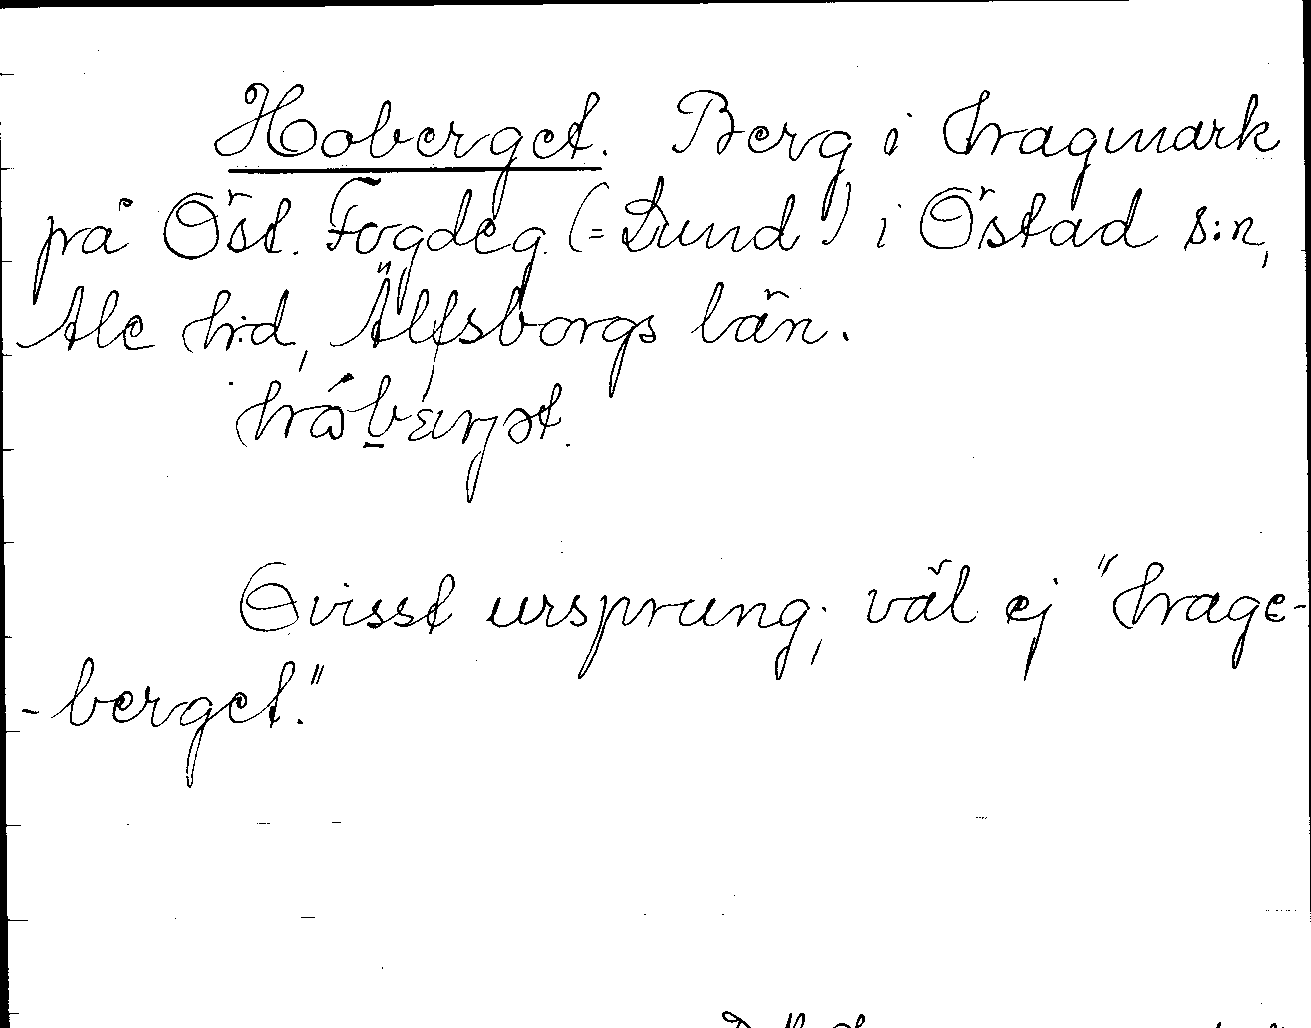 Hoberget. Berg i hagmark
på Öst. Fogdeg. (= Lund) i Östad s:n,
Ale h:d, Älfsborgs län.
Ovisst ursprung; väl ej "hage-
-berget."